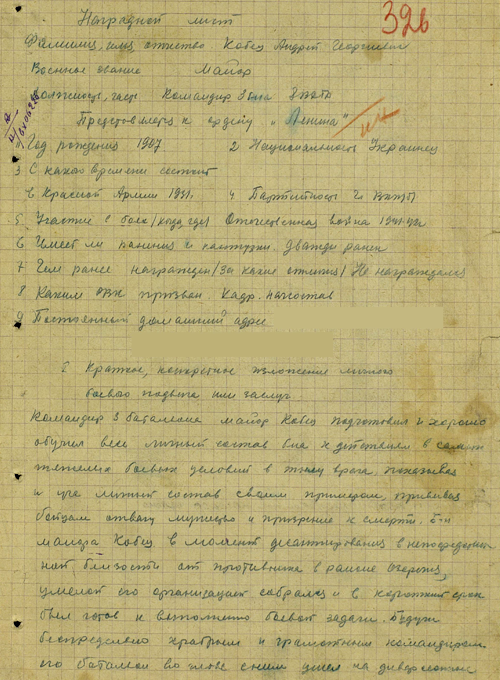 Наградной лист
326
Фамилия, имя отчество Кобец Андрей Георгиевич
Военное звание Майор
должность, часть Командир 3 б-на
Представляется к ордену "Ленина"
1 Год рождения 1907 2 Национальность Украинец
3 С какого времени состоит
в Красной Армии 1931. 4 Партийность Чл ВКП/б/
5 Участие в боях /когда, где/ Отечественная война 1941-42г
6 Имеет ли ранения и контузии. Дважды ранен
7 Чем ранее награжден /за какие отличия/ Не награждался
8 Каким РВК призван Кадр. начсостав
9 Постоянный домашний адрес
Краткое, конкретное изложение личного
боевого подвига или заслуг.
Командир 3 батальона майор Кобец подготовил и хорошо
обучил весь личный состав б-на к действиям в самых
тяжелых боевых условий в тылу врага, показывая
и уча личный состав своим примером, прививая
бойцам отвагу мужество и призрение к смерти. б-н
майора Кобец в момент десантирования в непосредствен
ной близости от противника в районе Озеречня,
умелой его организацией собрался и в короткий срок
был готов к выполнению боевой задачи. Будучи
беспредельно храбрым и грамотным командиром
его батальон во главе с ним ушел на